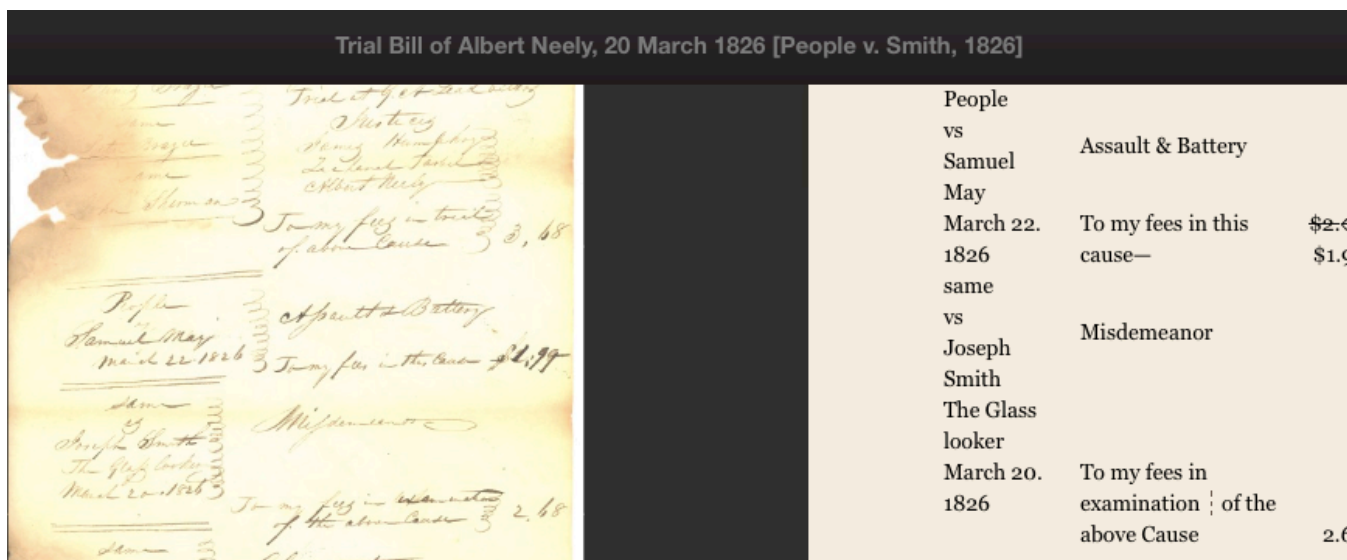 Trial Bill of Albert Neely, 20 March 1826 [People v. Smith, 1826]
same
same
Sherman
Justices
James Humphrey
Albert Neely
To my fees in trial
of above Cause 3,68
People
vs
Samuel May
March 22 1826
Assault & Battery
To my fees in this Cause $1,99
same
vs
Joseph Smith
The Glass looker
March 20. 1826
Misdemeanor
To my fees in examination
of the above Cause 2,68
same
People
vs
Samuel
May
March 22.
1826
Assault & Battery
To my fees in this
cause—
same
vs
Joseph
Smith
The Glass
looker
March 20.
1826
Misdemeanor
To my fees in
examination ¦ of the
above Cause